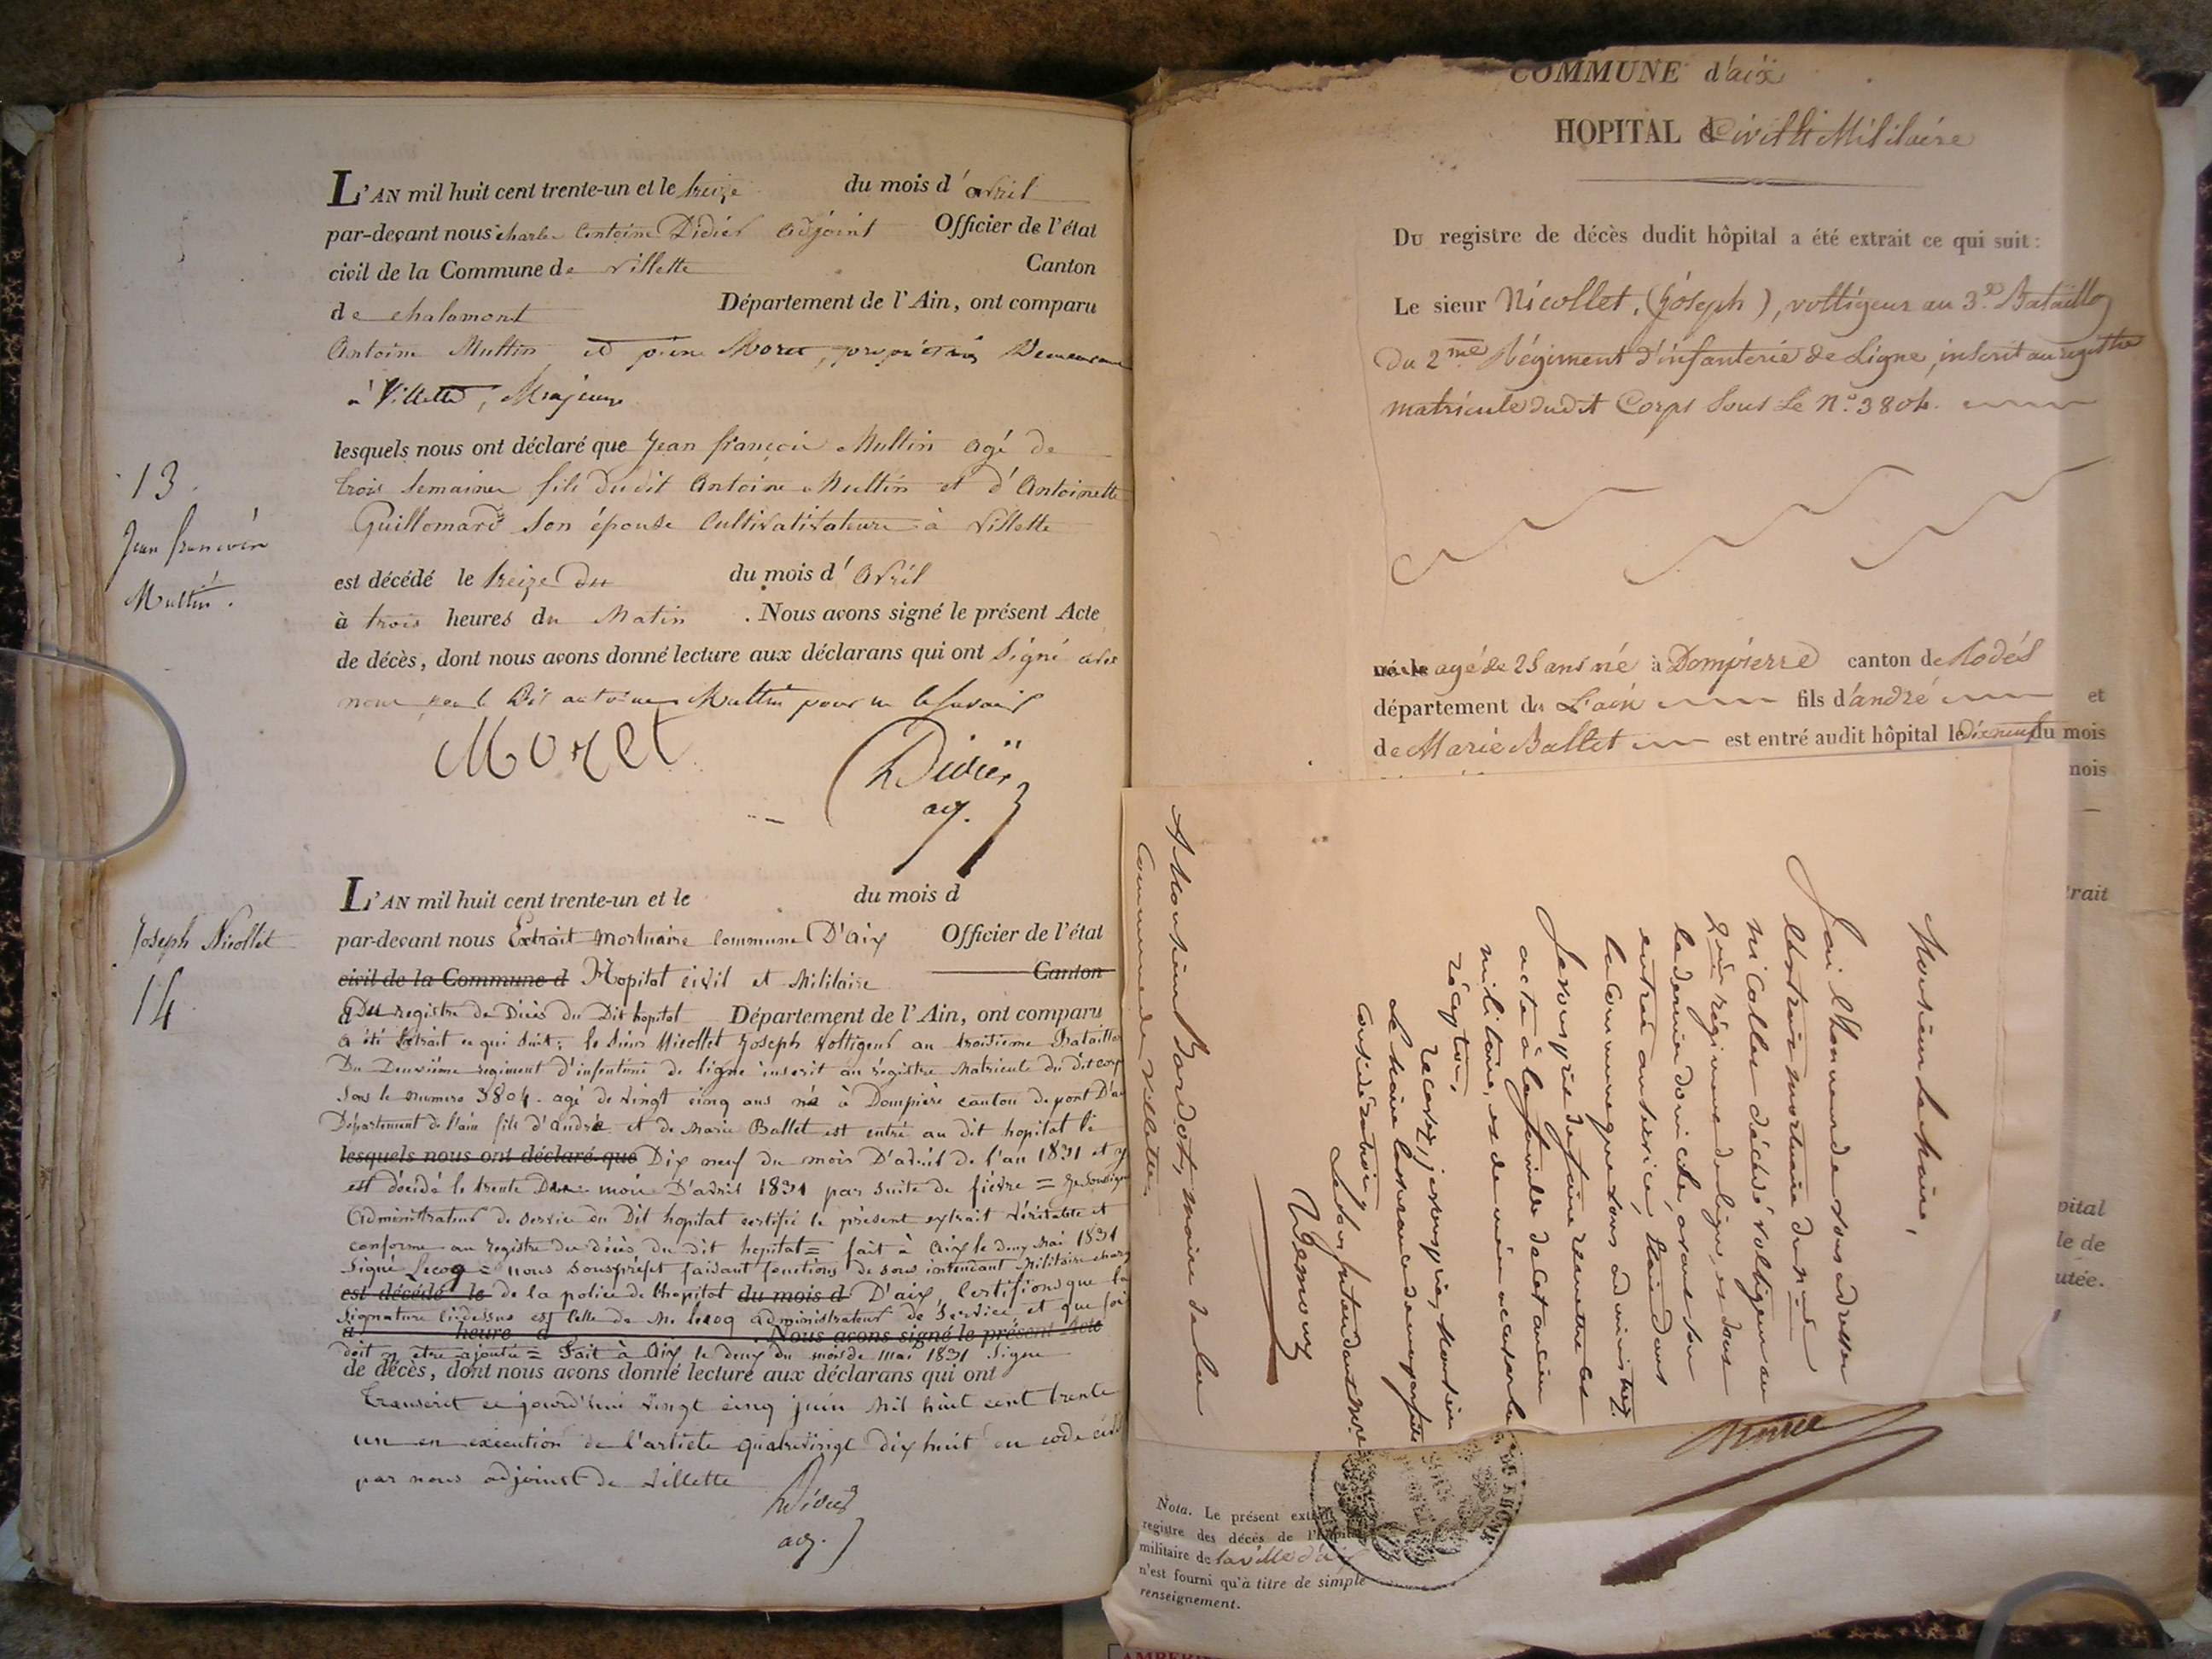 L'AN mil huit cent trente-un et le treize du mois d'avril
par-devant nous charles Antoine Didier adjoint Officier de l'état
civil de la Commune de villette Canton
de chalamont Département de l'Ain, ont comparu
Antoine Multin et pierre Moret, propriétaires Demeurant
à Villette, Majeurs
lesquels nous ont déclaré que Jean françois Multin agé de
trois semaines fils dudit Antoine Multin et d'Antoinette
Guillomard son épouse Cultivativateurs à villette
est décédé le treize du du mois d'Avril
à trois heures du Matin . Nous avons signé le présent Acte
de décès, dont nous avons donné lecture aux déclarans qui ont signé avec
nous non le dit antoine Multin pour ne le savoir
Moret
Didier
adj.
13.
Jean francois
Multin.
L'AN mil huit cent trente-un et le du mois d
par-devant nous Extrait Mortuaire Commune D'aix Officier de l'état
civil de la Commune d Hopital civil et Militaire Canton
d Du registre de Décès du Dit hopital Département de l'Ain, ont comparu
a été Extrait ce qui suit; le sieur Nicollet Joseph Voltigeur au troisieme Bataillon
Du Deuxiême regiment d'infenterie de ligne inscrit au régistre Matricule du dit corp
sous le numero 3804. agé de vingt cinq ans né à Dompière canton de pont D'a
Département de l'ain fils d'André et de Marie Ballet est entré au dit hopital le
lesquels nous ont déclaré que Dix neuf du mois D'avril de l'an 1831 et y
est décédé le trente Du mois D'avril 1831 par suite de fièvre = je soussigné
Administrateur de service du Dit hopital certifie le présent extrait véritable et
conforme au registre du décès du dit hopital = fait à Aix le deux Mai 1831
signé Lecoq = nous sousprefet faisant fonctions de sous intendant Militaire chargé
est décédé le de la police de l'hopital du mois d D'aix, Certifions que la
signature ci-dessus est celle de M. lecoq administrateur de service et que foi
à heure d . Nous avons signé le présent Acte
doit y etre ajoutée = Fait à Aix le deux du mois de mai 1831 signé
de décès, dont nous avons donné lecture aux déclarans qui ont
transcrit ce jourd'hui vingt cinq juin Mil huit cent trente
un en exécution de l'article quatrevingt dix huit du code civil
par nous adjoint de villette
Didier
adj.
Joseph Nicollet
14
COMMUNE d'aix
HOPITAL d Civil & Militaire
Du registre de décès dudit hôpital a été extrait ce qui suit :
Le sieur Nicollet, (Joseph), voltigeur au 3e Bataillon
du 2me Régiment d'infanterie de Ligne, inscrit au registre
matricule dudit Corps sous le N.o 3804.
né le agé de 25 ans né à Dompierre canton de Rodés
département du L'ain fils d'andré et
de Marie Ballet est entré audit hôpital le Dixneuf du mois
mois
trait
pital
le de
utée.
Monsieur Le Maire,
J'ai l'honneur de vous adresser
l'extrait mortuaire du nommé
Nicollet décédé voltigeur au
2me régiment de ligne, et dont
le dernier domicile, avant son
entrée au service, était dans
la Commune que vous administrez.
Je vous prie de faire remettre cet
acte à la famille de cet ancien
militaire, et de m'en accuser la
réception.
Recevez, je vous prie, Monsieur
le Maire l'assurance de ma parfaite
considération,
Le Sous Intendant Mre
A Monsieur Bardot, maire de la
Commune de villette
Nota. Le présent extrait
registre des décès de l'hôpital
militaire de la ville d'aix
n'est fourni qu'à titre de simple
renseignement.